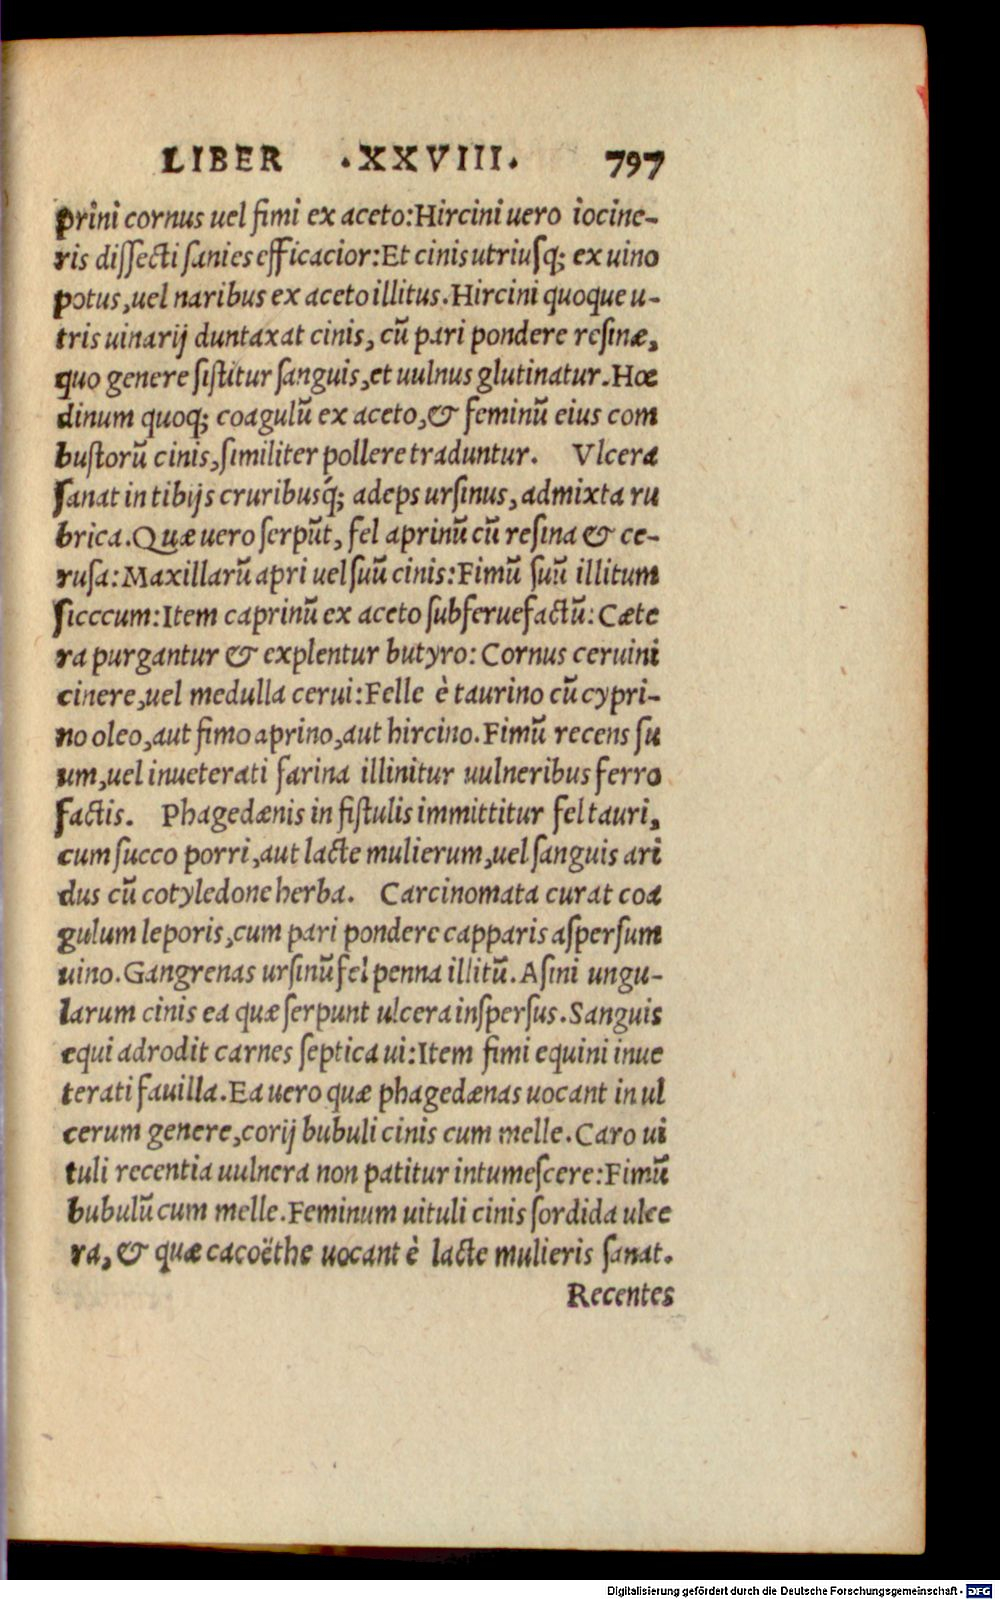 LIBER .XXVIII. 797
prini cornus uel fimi ex aceto:Hircini uero iocine-
ris dissecti sanies efficacior:Et cinis utriusq; ex uino
potus,uel naribus ex aceto illitus.Hircini quoque u-
tris uinarij duntaxat cinis, cū pari pondere resinæ,
quo genere sistitur sanguis,et uulnus glutinatur.Hœ
dinum quoq; coagulū ex aceto,& feminū eius com
bustorū cinis,similiter pollere traduntur. Vlcera
sanat in tibijs cruribusq́; adeps ursinus, admixta ru
brica.Quæ uero serpūt, fel aprinū cū resina & ce-
rusa:Maxillarū apri uel suū cinis:Fimū suū illitum
sicccum:Item caprinū ex aceto subferuefactū: Cæte
ra purgantur & explentur butyro: Cornus ceruini
cinere,uel medulla cerui:Felle è taurino cū cypri-
no oleo,aut fimo aprino,aut hircino.Fimū recens su
um,uel inueterati farina illinitur uulneribus ferro
factis. Phagedænis in fistulis immittitur fel tauri,
cum succo porri,aut lacte mulierum,uel sanguis ari
dus cū cotyledone herba. Carcinomata curat coa
gulum leporis,cum pari pondere capparis aspersum
uino.Gangrenas ursinū fel penna illitū.Asini ungu-
larum cinis ea quæ serpunt ulcera inspersus.Sanguis
equi adrodit carnes septica ui:Item fimi equini inue
terati fauilla.Ea uero quæ phagedænas uocant in ul
cerum genere,corij bubuli cinis cum melle.Caro ui
tuli recentia uulnera non patitur intumescere:Fimū
bubulū cum melle.Feminum uituli cinis sordida ulce
ra, & quæ cacoëthe uocant è lacte mulieris sanat.
Recentes
Digitalisierung gefördert durch die Deutsche Forschungsgemeinschaft - DFG